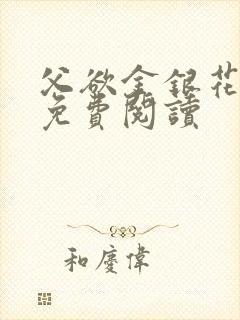 父欲金銀花
免費閱讀
和慶偉